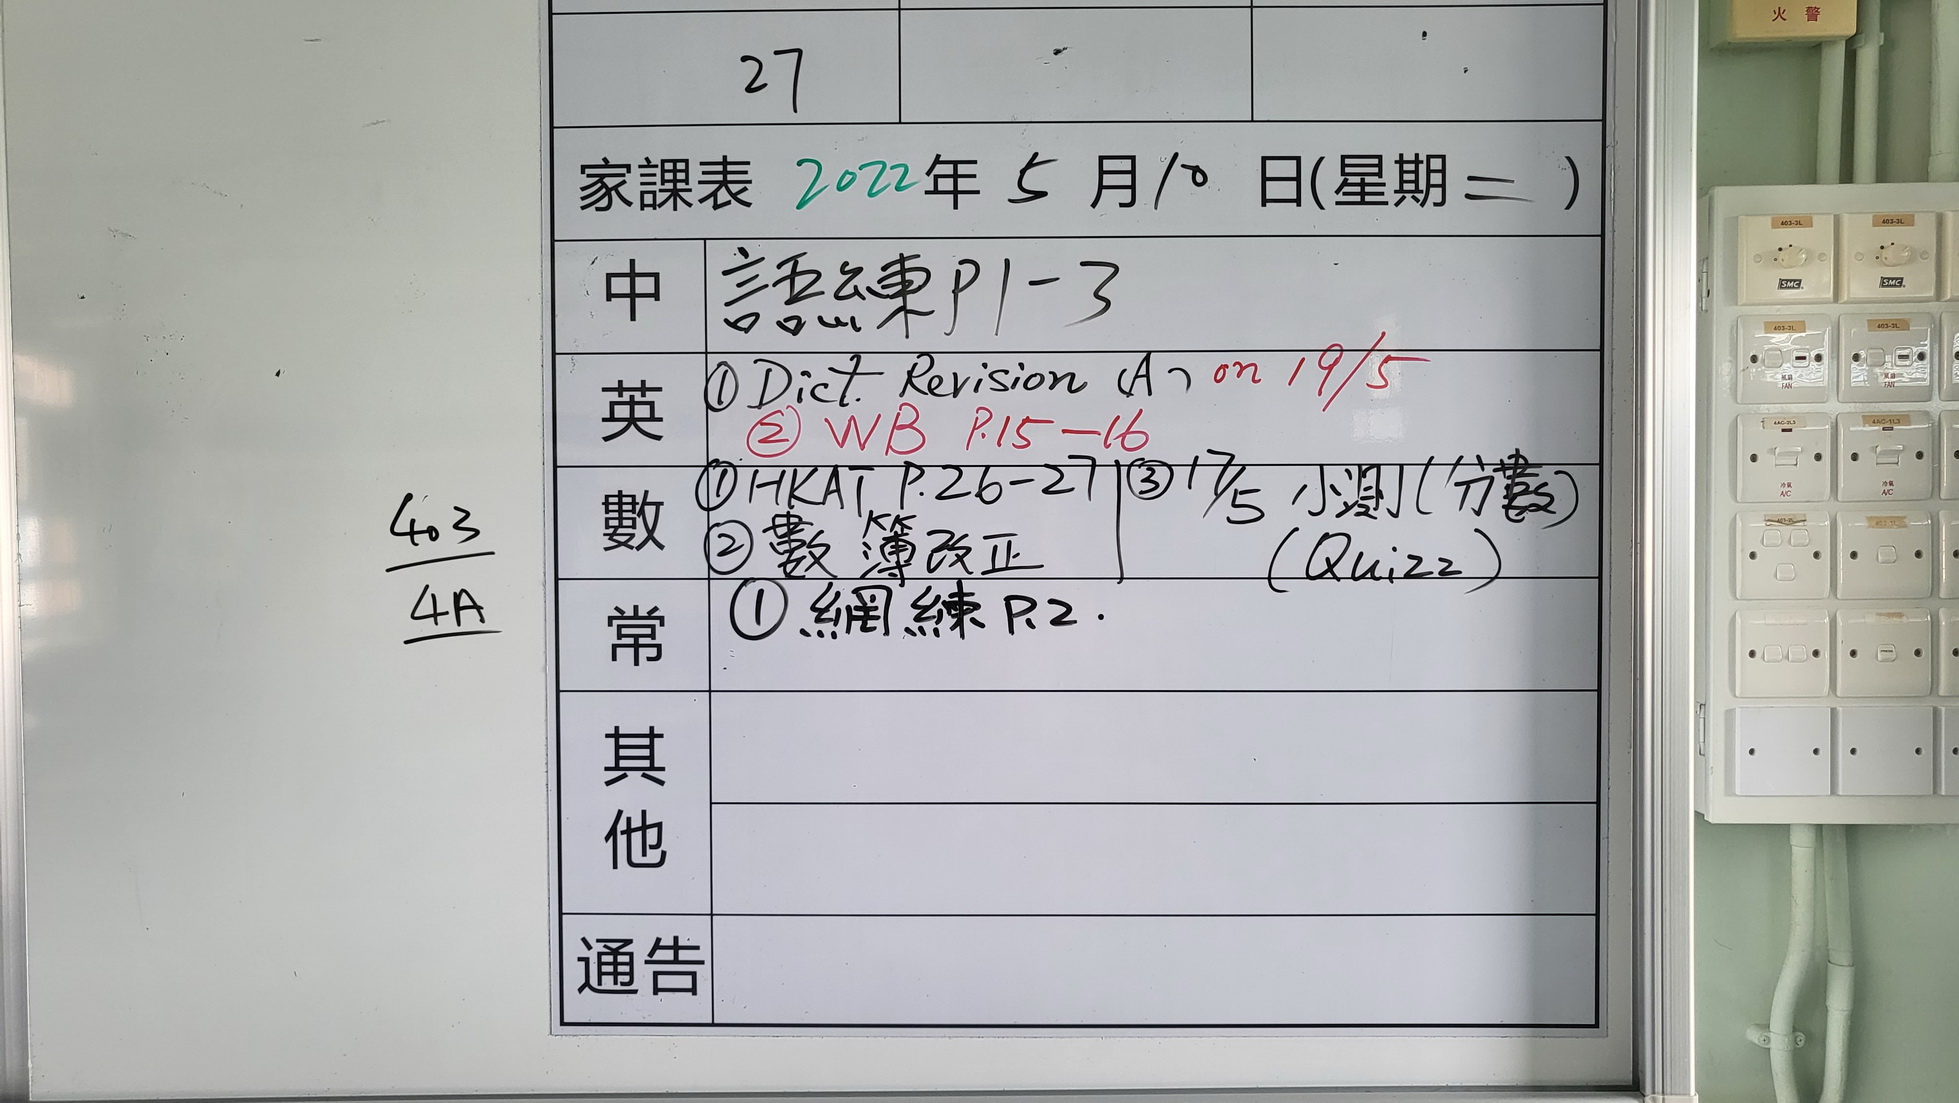 27
家課表 2022年 5 月 10 日(星期二 )
中 語練 P1-3
英 ① Dict. Revision (A) on 19/5
② WB P.15-16
數 ① HKAT P.26-27
② 數簿改正
③ 17/5 小測(分數)
(Quizz)
常 ① 網練 P.2.
其他
通告
403
4A
火警
403-3L
403-3L
SMC
SMC
403-3L
403-3L
風扇
FAN
風扇
FAN
4AC-2L3
4AC-1L3
冷氣
A/C
冷氣
A/C